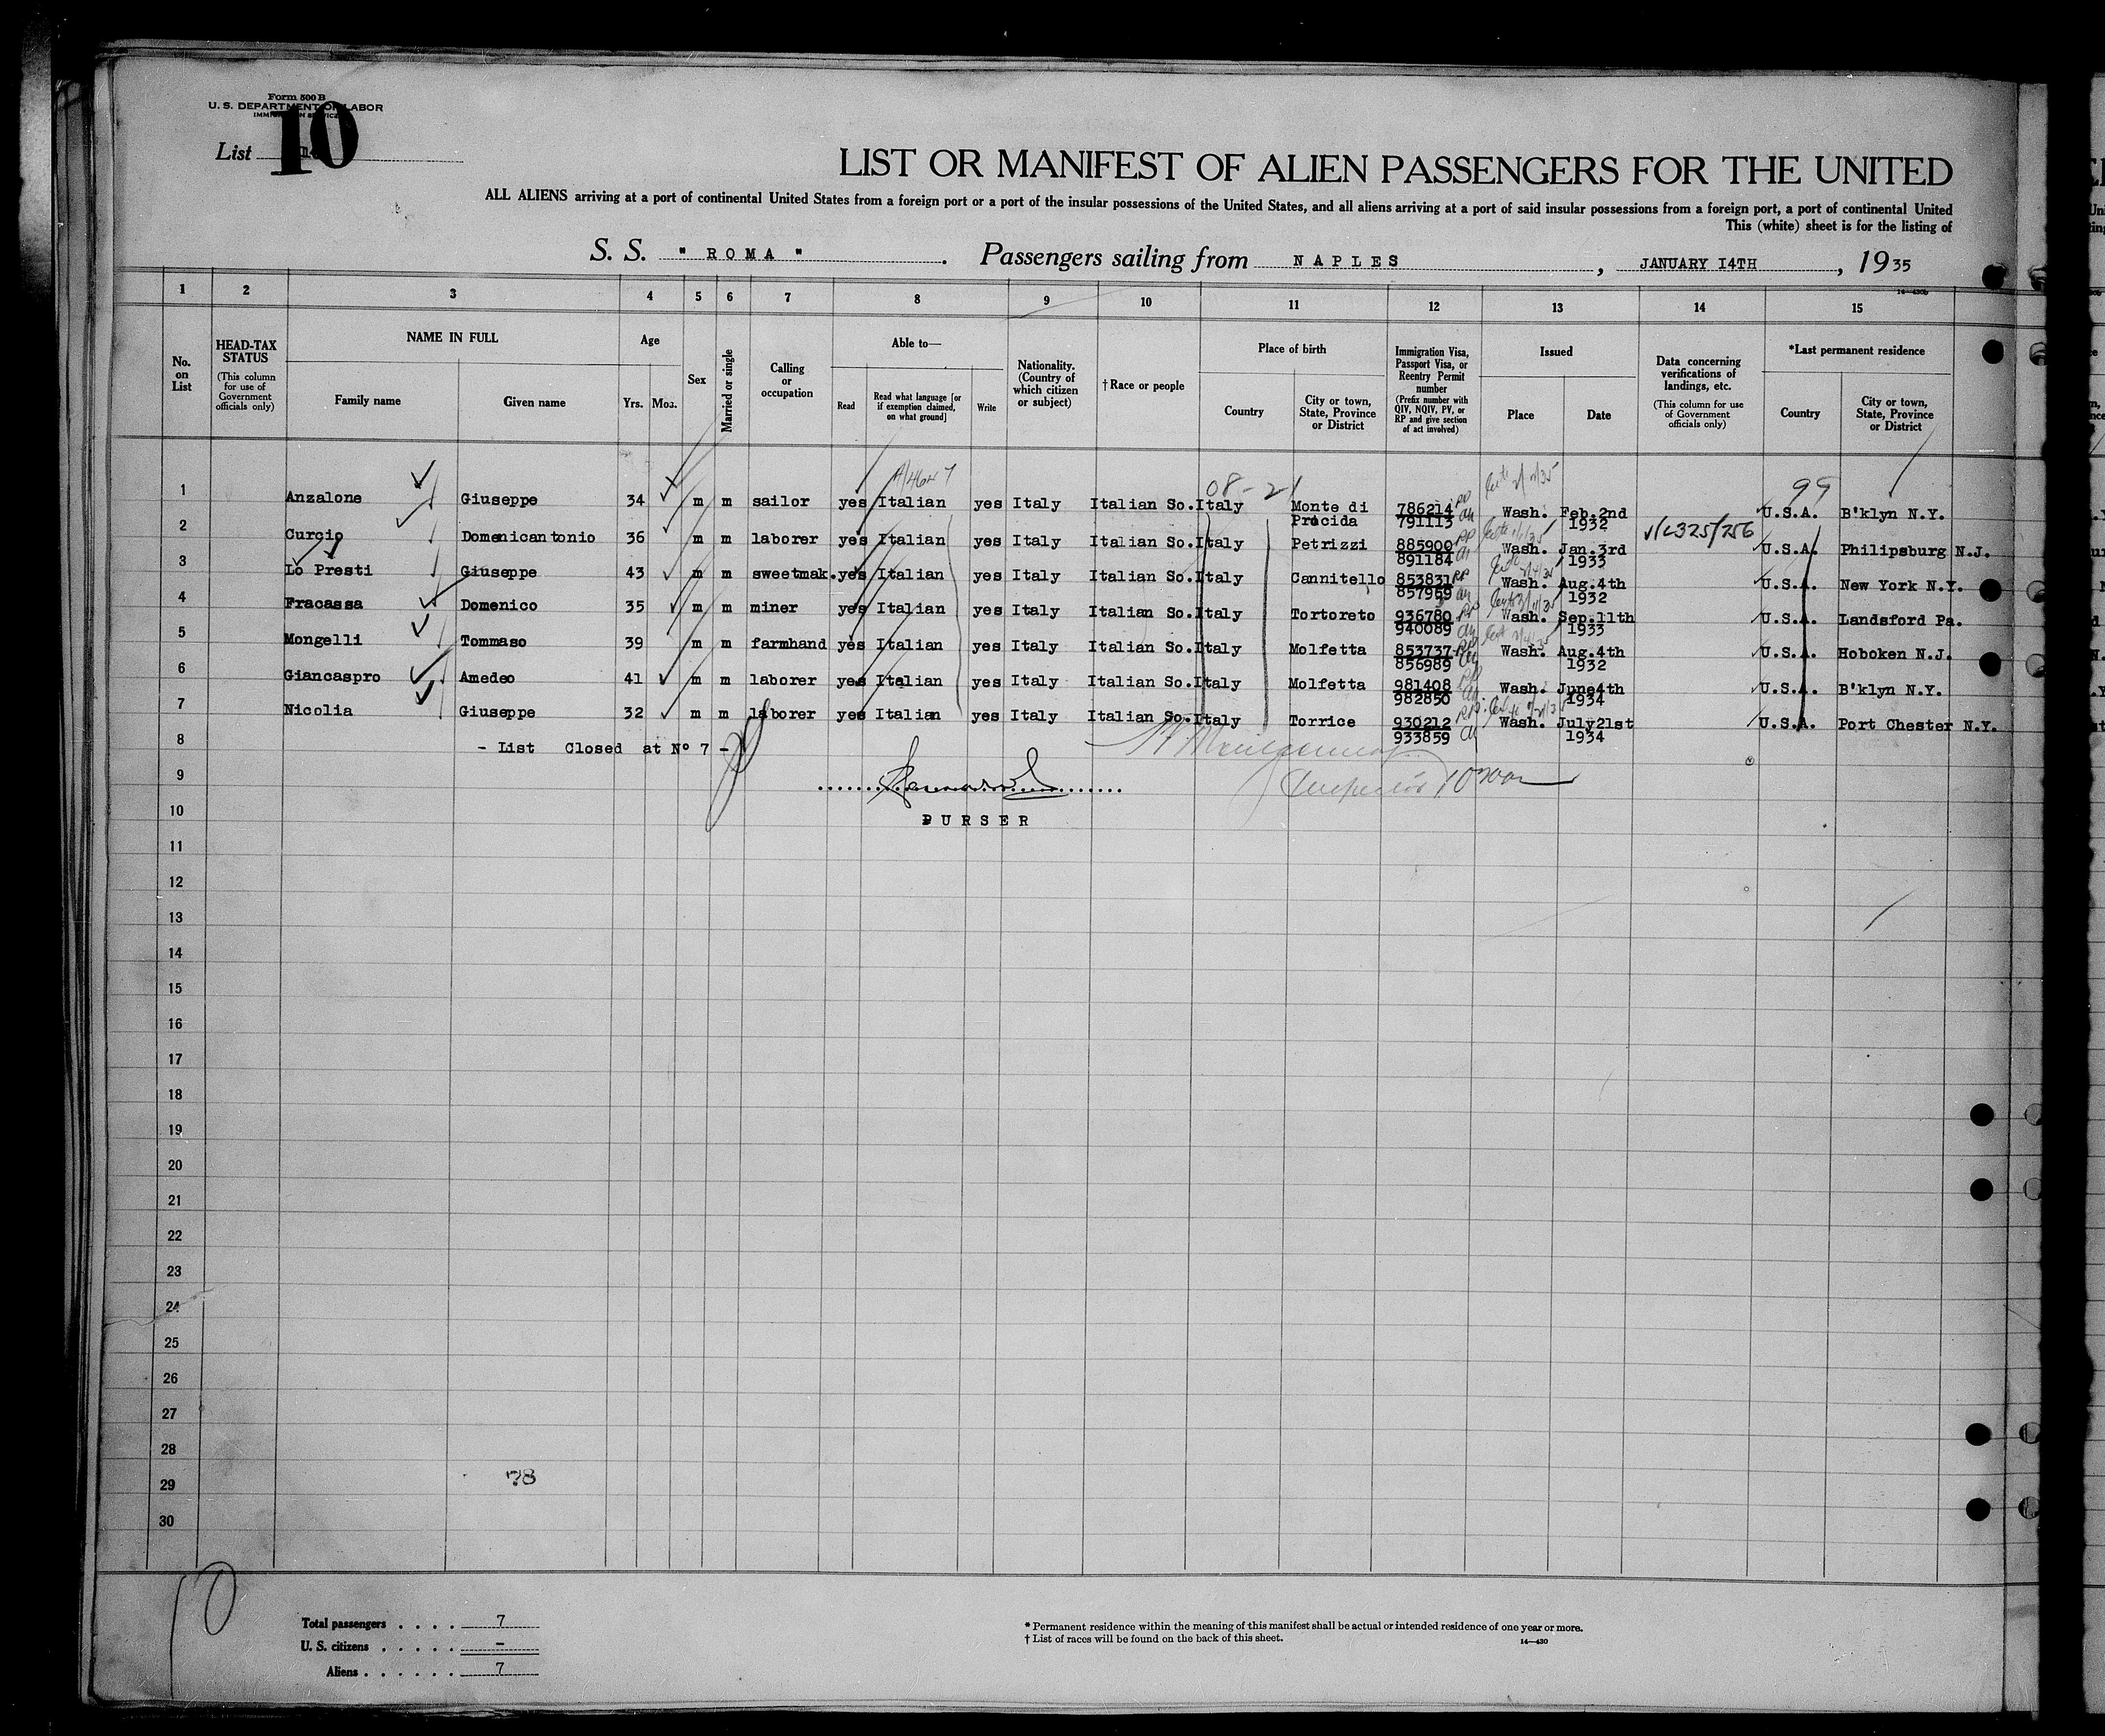 Form 500 B
U. S. DEPARTMENT OF LABOR
List 10
LIST OR MANIFEST OF ALIEN PASSENGERS FOR THE UNITED
ALL ALIENS arriving at a port of continental United States from a foreign port or a port of the insular possessions of the United States, and all aliens arriving at a port of said insular possessions from a foreign port, a port of continental United
This (white) sheet is for the listing of
S. S. "ROMA". Passengers sailing from NAPLES, JANUARY 14TH, 1935
1 2 3 4 5 6 7 8 9 10 11 12 13 14 15
No. on List
HEAD-TAX STATUS (This column for use of Government officials only)
NAME IN FULL
Family name
Given name
Age
Yrs. Mos.
Sex
Married or single
Calling or occupation
Able to—
Read
Read what language [or if exemption claimed, on what ground]
Write
Nationality. (Country of which citizen or subject)
† Race or people
Place of birth
Country
City or town, State, Province or District
Immigration Visa, Passport Visa, or Reentry Permit number (Prefix number with QIV, NQIV, PV, or RP and give section of act involved)
Issued
Place
Date
Data concerning verifications of landings, etc. (This column for use of Government officials only)
*Last permanent residence
Country
City or town, State, Province or District
08-21 99
1 Anzalone Giuseppe 34 m m sailor yes Italian yes Italy Italian So. Italy Monte di Procida 786214 791113 Wash. Feb.2nd 1932 U.S.A. B'klyn N.Y.
2 Curcio Domenicantonio 36 m m laborer yes Italian yes Italy Italian So. Italy Petrizzi 885900 891184 Wash. Jan.3rd 1933 U.S.A. Philipsburg N.J.
3 Lo Presti Giuseppe 43 m m sweetmak. yes Italian yes Italy Italian So. Italy Cannitello 853831 857969 Wash. Aug.4th 1932 U.S.A. New York N.Y.
4 Fracassa Domenico 35 m m miner yes Italian yes Italy Italian So. Italy Tortoreto 936780 940089 Wash. Sep.11th 1933 U.S.A. Landsford Pa.
5 Mongelli Tommaso 39 m m farmhand yes Italian yes Italy Italian So. Italy Molfetta 853737 856989 Wash. Aug.4th 1932 U.S.A. Hoboken N.J.
6 Giancaspro Amedeo 41 m m laborer yes Italian yes Italy Italian So. Italy Molfetta 981408 982850 Wash. June4th 1934 U.S.A. B'klyn N.Y.
7 Nicolia Giuseppe 32 m m laborer yes Italian yes Italy Italian So. Italy Torrice 930212 933859 Wash. July21st 1934 U.S.A. Port Chester N.Y.
8 - List Closed at No 7 -
9
10 PURSER
11
12
13
14
15
16
17
18
19
20
21
22
23
24
25
26
27
28
29 78
30
10
Total passengers . . . . 7
U. S. citizens . . . . . —
Aliens . . . . . . 7
* Permanent residence within the meaning of this manifest shall be actual or intended residence of one year or more.
† List of races will be found on the back of this sheet. 14—430